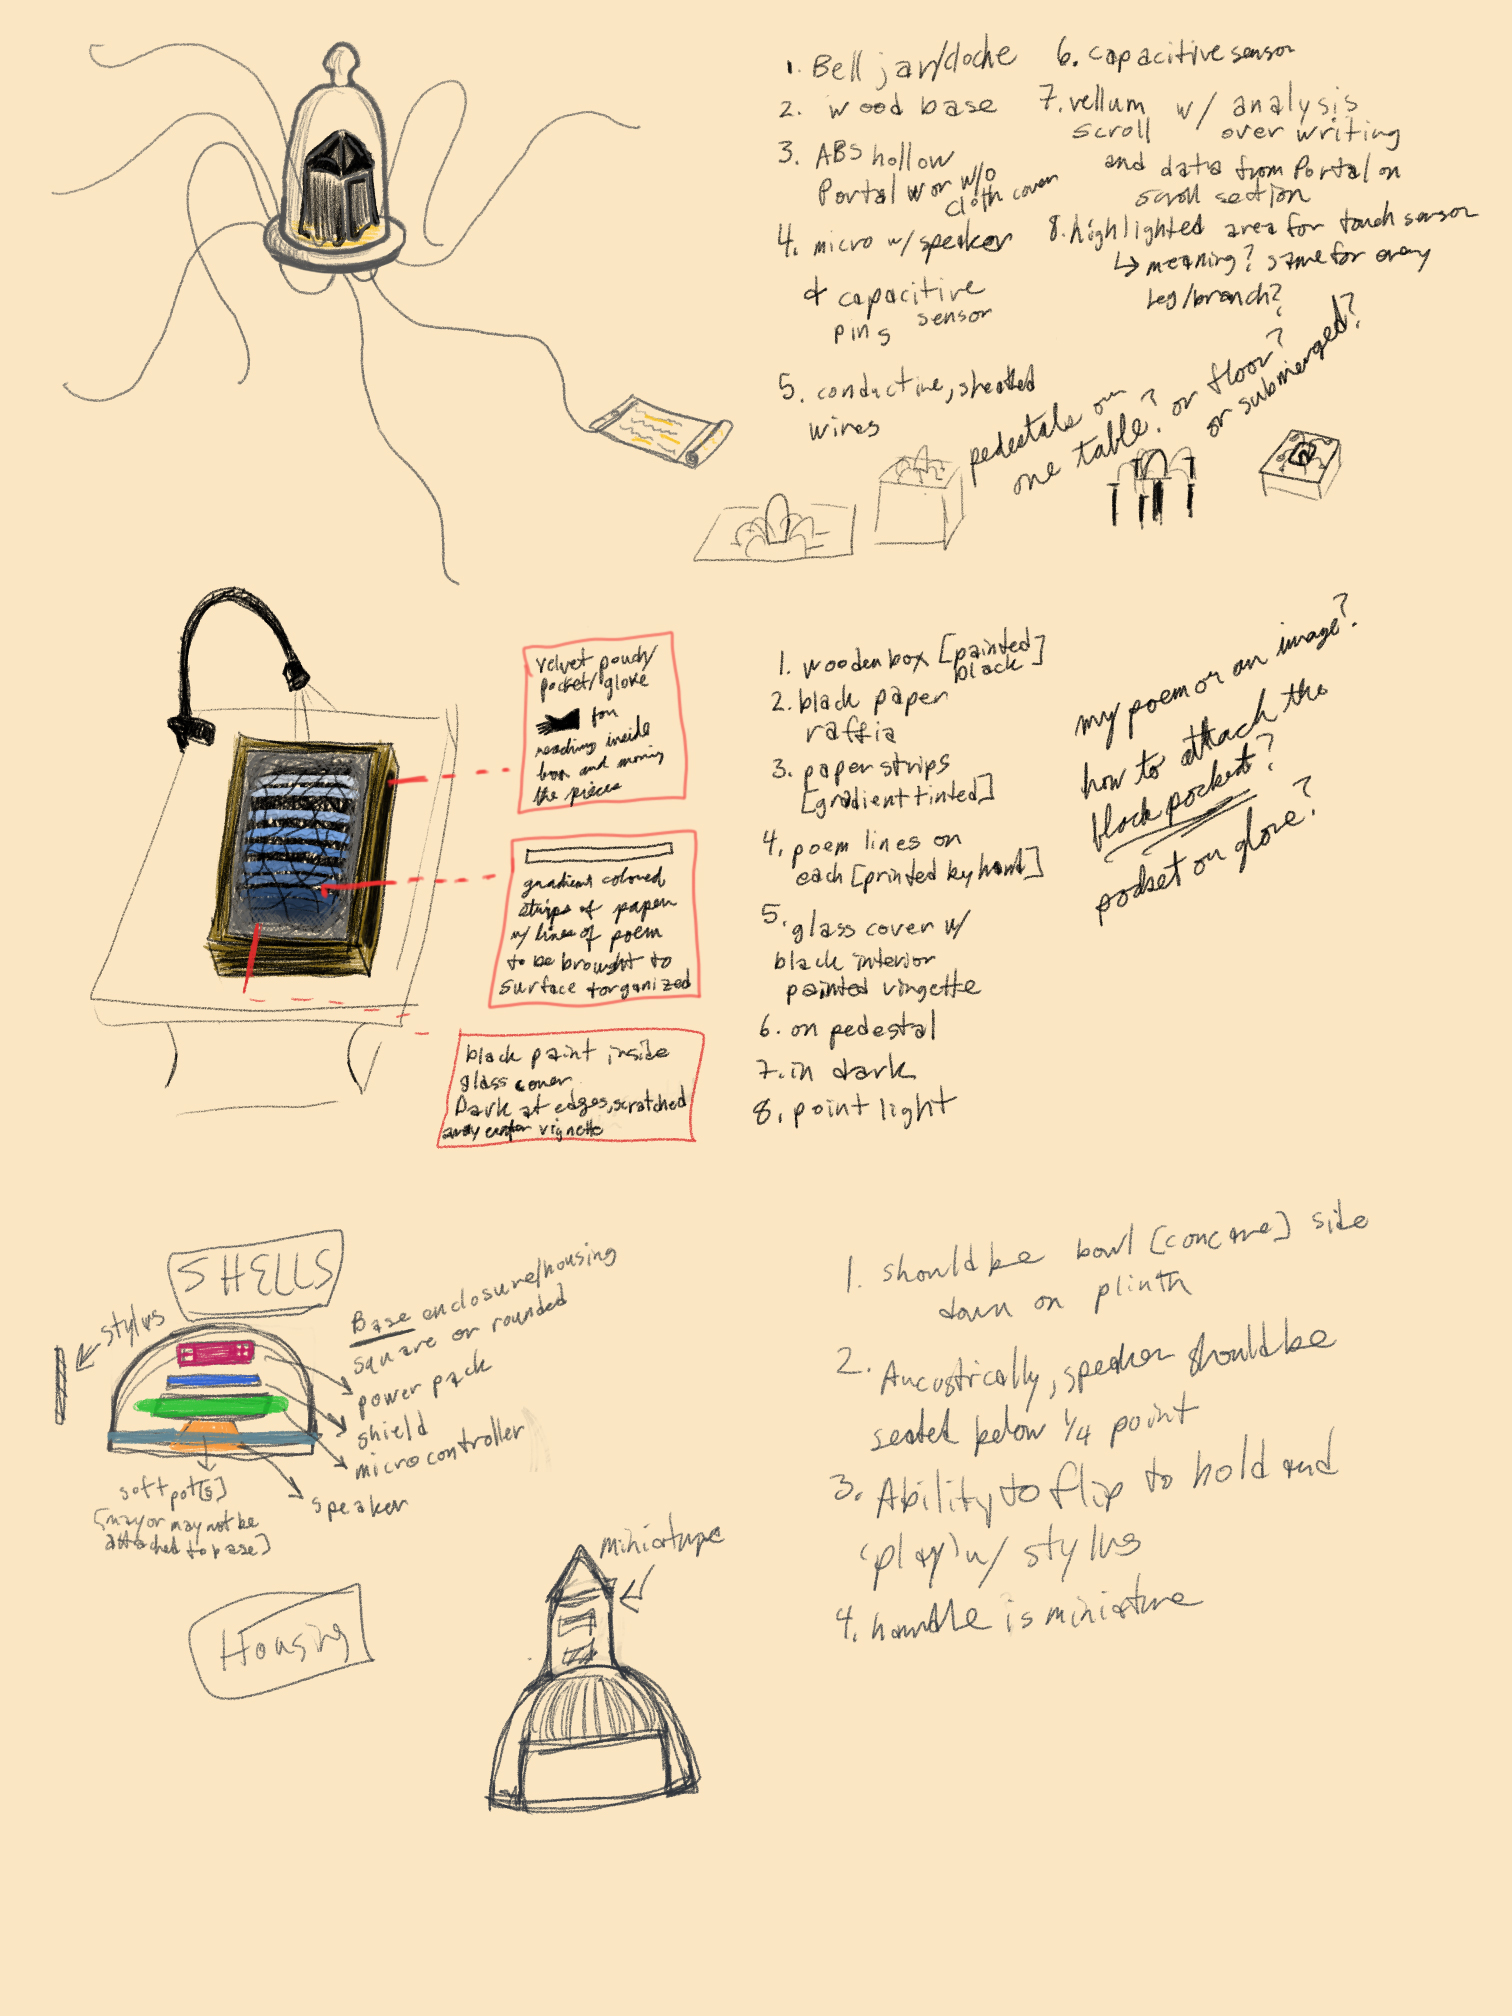 1. Bell jar/cloche
2. wood base
3. ABS hollow
Portal w or w/o
cloth cover
4. micro w/ speaker
& capacitive
ping sensor
5. conductive, sheathed
wires
6. capacitive sensor
7. vellum w/ analysis
scroll over writing
and data from Portal on
scroll section
8. highlighted area for touch sensor
↳ meaning? same for every
leg/branch?
pedestals on
one table? or floor?
or submerged?
velvet pouch/
pocket/glove
for
reaching inside
box and moving
the pieces
gradient colored
strips of paper
w/ lines of poem
to be brought to
surface & organized
black paint inside
glass cover
Dark at edges, scratched
away center vignette
1. wooden box [painted
black]
2. black paper
raffia
3. paper strips
[gradient tinted]
4. poem lines on
each [printed by hand]
5. glass cover w/
black interior
painted vingette
6. on pedestal
7. in dark
8. point light
my poem or an image?
how to attach the
black pocket?
pocket or glove?
SHELLS
stylus
Base enclosure/housing
square or rounded
power pack
shield
microcontroller
speaker
soft pot[s]
[may or may not be
attached to base]
1. should be bowl [concave] side
down on plinth
2. Aucostrically, speaker should be
seated below 1/4 point
3. Ability to flip to hold and
'play' w/ stylus
4. handle is miniature
miniature
Housing